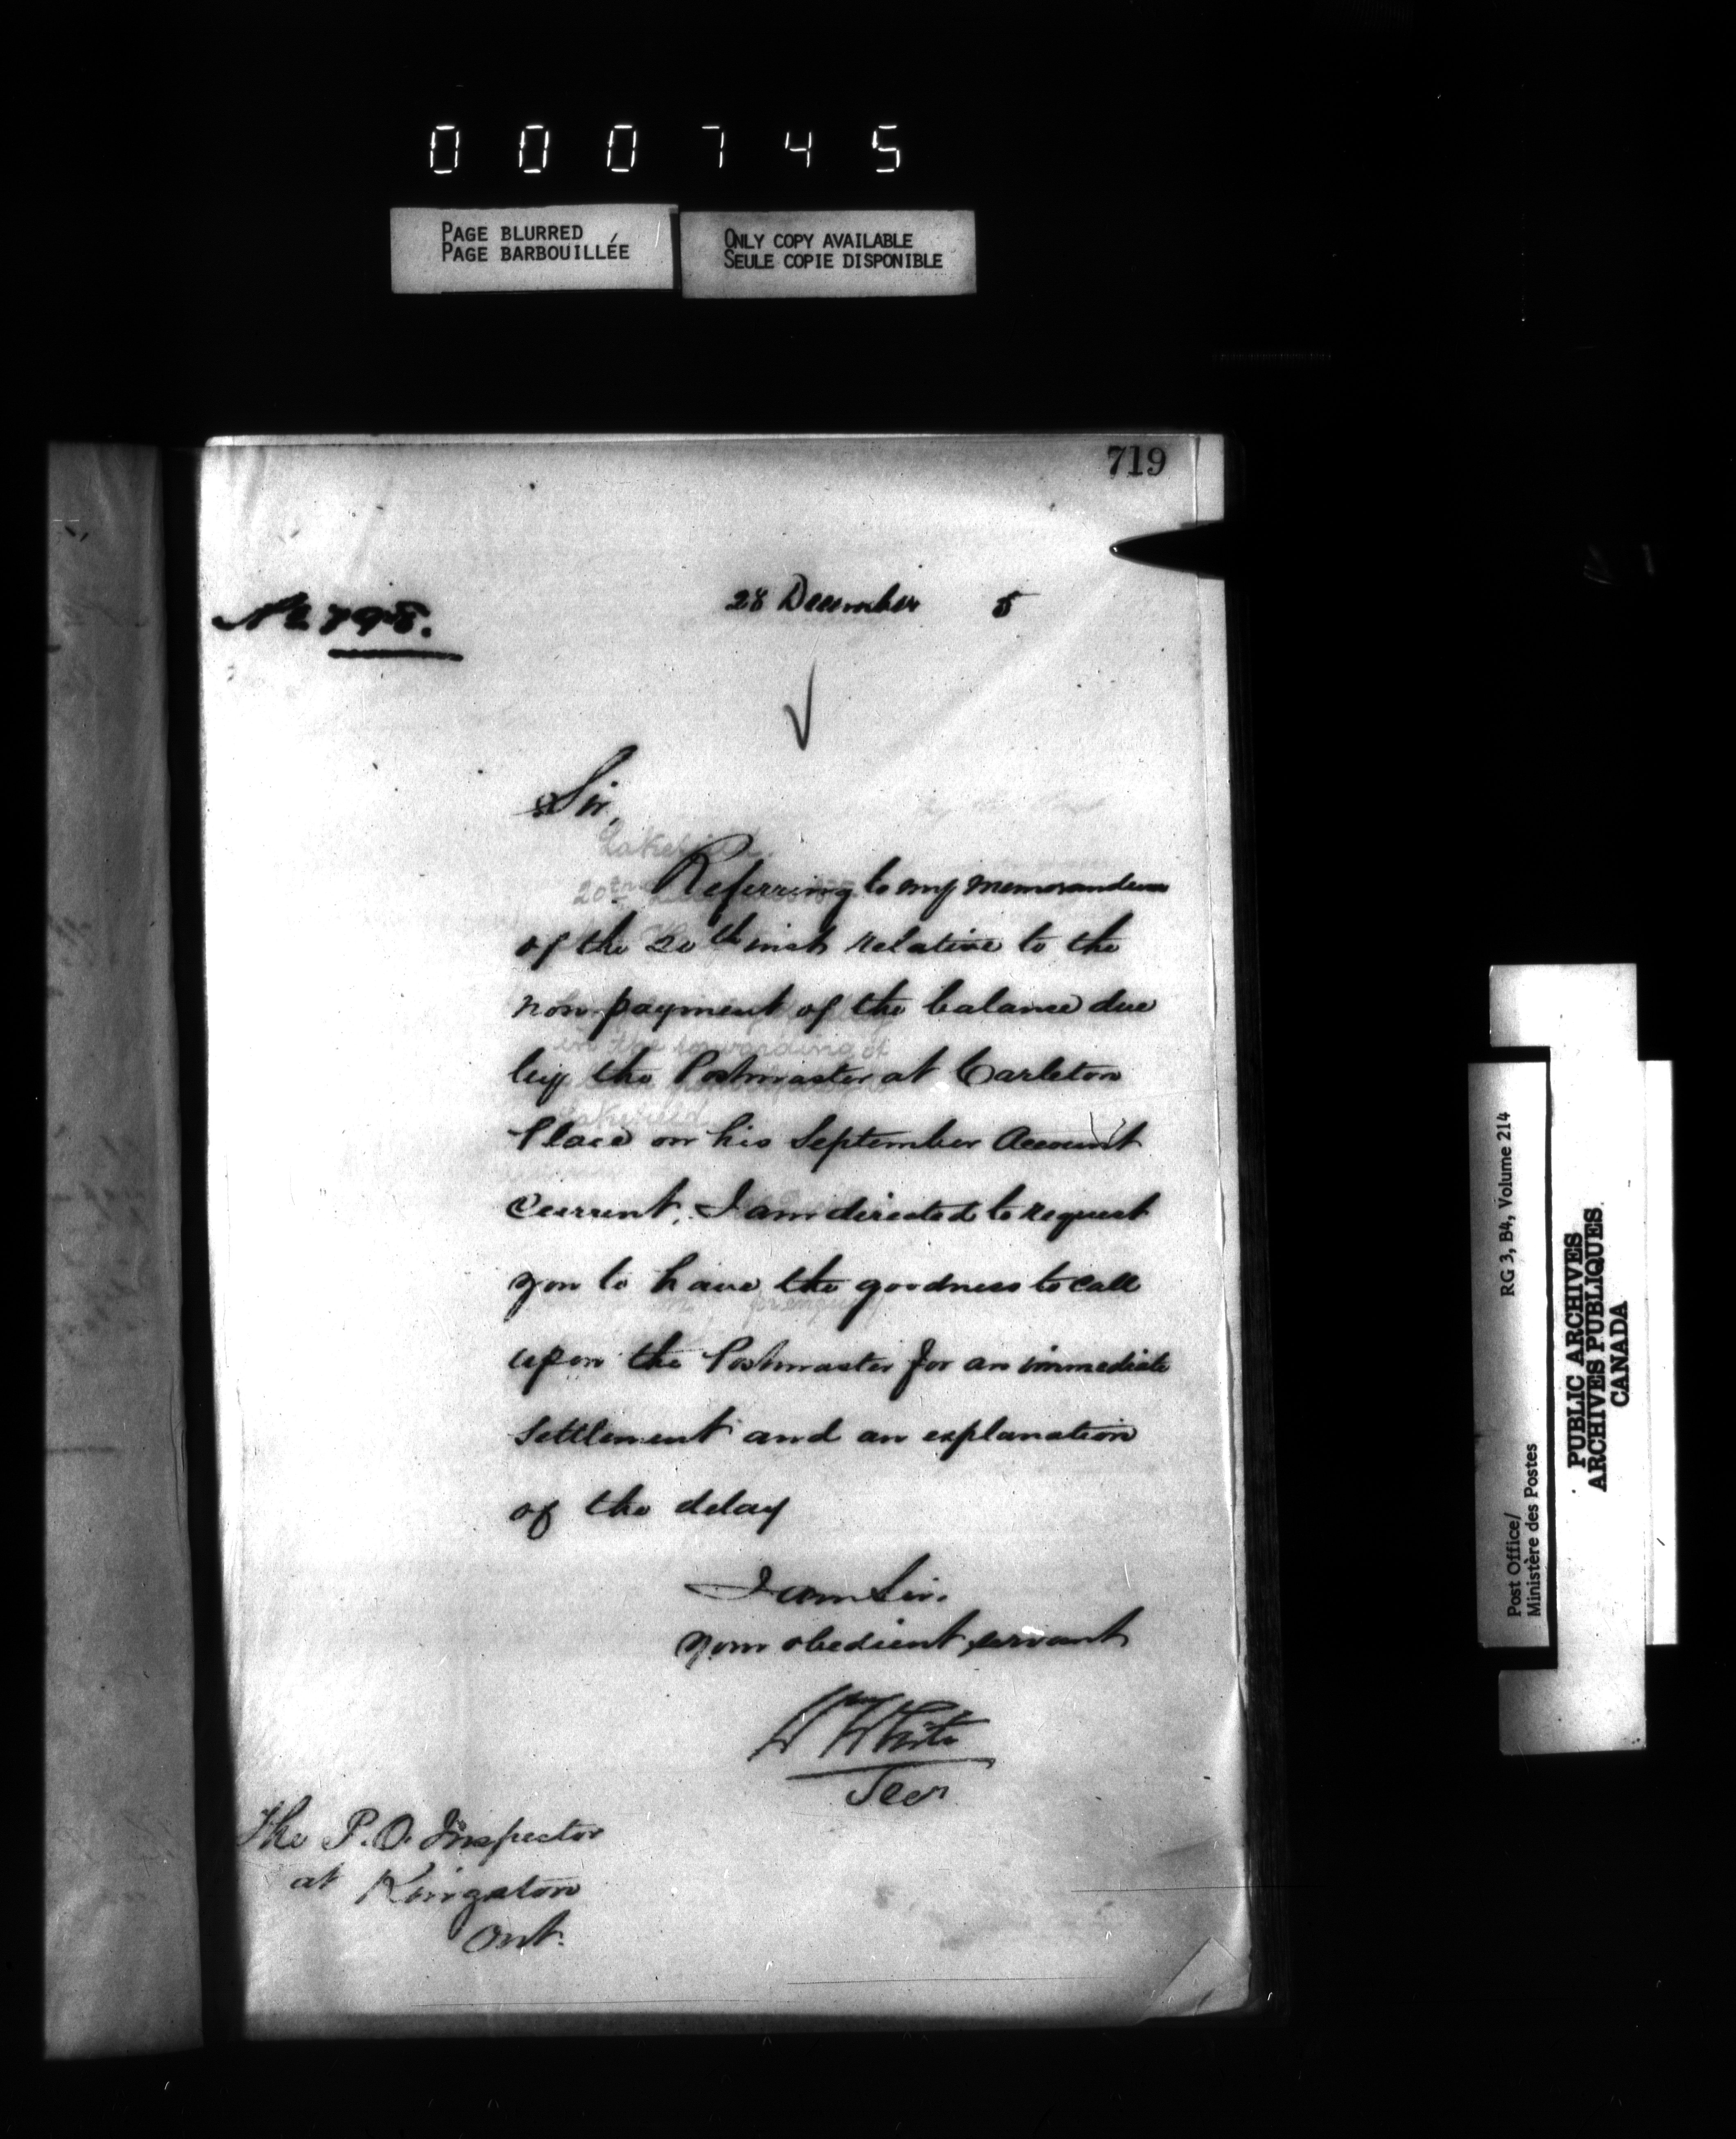 000745
PAGE BLURRED
PAGE BARBOUILLÉE
ONLY COPY AVAILABLE
SEULE COPIE DISPONIBLE
719
28 December 5
Sir,
Referring to my memorandum
of the 20th inst relative to the
non payment of the balance due
by the Postmaster at Carleton
Place on his September Account
Current, I am directed to request
you to have the goodness to call
upon the Postmaster for an immediate
settlement and an explanation
of the delay
I am Sir.
your obedient servant
Wm White
Secy
The P.O. Inspector
at Kingston
Ont.
RG 3, B4, Volume 214
Post Office/
Ministère des Postes
PUBLIC ARCHIVES
ARCHIVES PUBLIQUES
CANADA